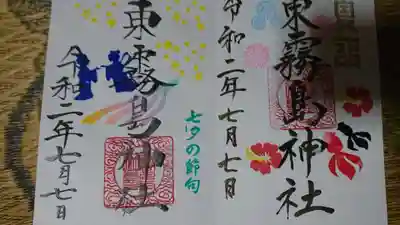 東霧島神社
令和二年七月七日
七夕の節句
東霧島神社
令和二年七月七日